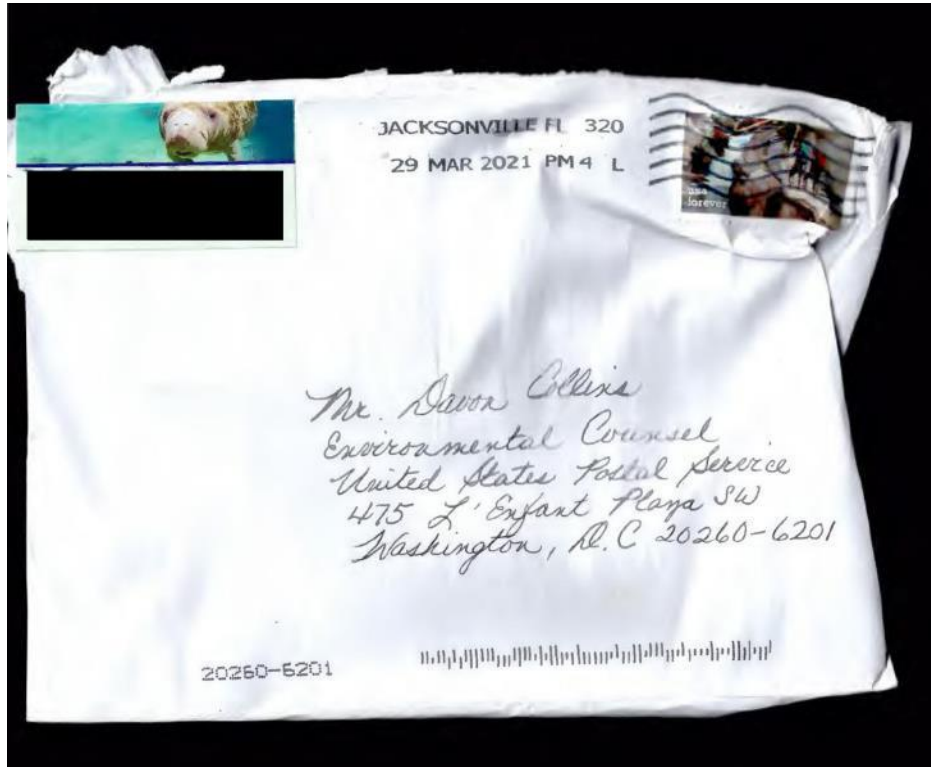 JACKSONVILLE FL 320
29 MAR 2021 PM 4 L
USA
forever
Mr. Davon Collins
Environmental Counsel
United States Postal Service
475 L'Enfant Plaza SW
Washington, D.C 20260-6201
20260-6201